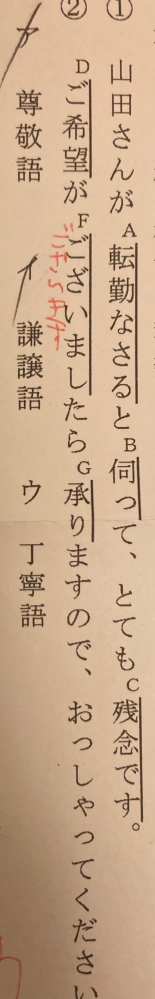 ① 山田さんが A転勤なさると B伺って、とても C残念です。
② Dご希望が Fございましたら G承りますので、おっしゃってください
ア 尊敬語 イ 謙譲語 ウ 丁寧語